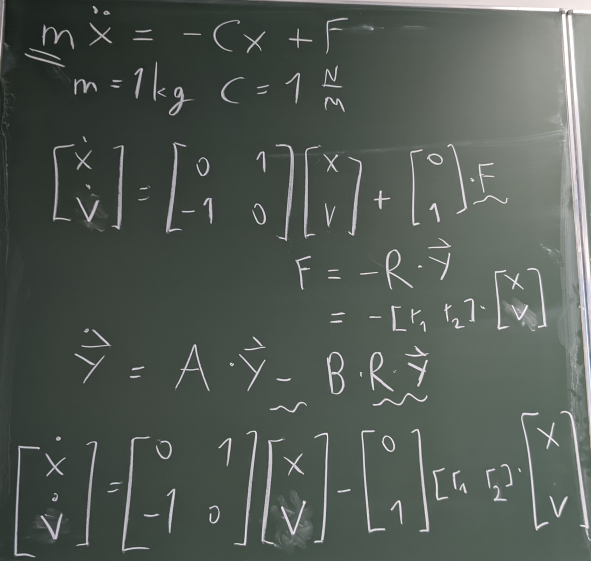 m ẍ = -Cx + F
m = 1 kg C = 1 N/m
[ẋ v̇] = [0 1 -1 0] [x v] + [0 1] · F
F = -R · y⃗
= -[r₁ r₂] · [x v]
y⃗̇ = A · y⃗ - B · R · y⃗
[ẋ v̇] = [0 1 -1 0] [x v] - [0 1] [r₁ r₂] · [x v]